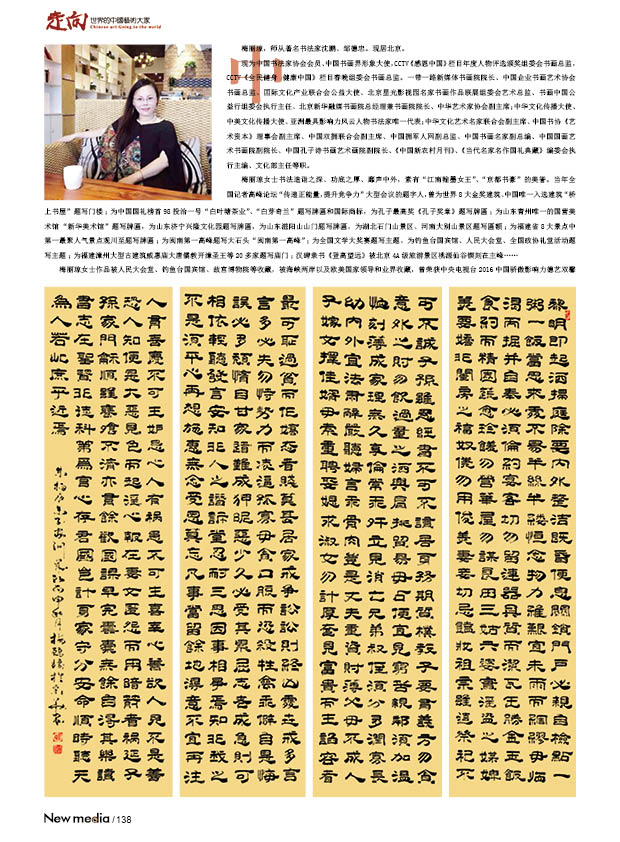 走向世界的中國藝術大家
Chinese art Going to the world
梅丽琼,师从著名书法家沈鹏、邹德忠。现居北京。
现为中国书法家协会会员、中国书画界形象大使,CCTV《感恩中国》栏目年度人物评选颁奖组委会书画总监,
CCTV《全民健身 健康中国》栏目春晚组委会书画总监。一带一路新媒体书画院院长、中国企业书画艺术协会
书画总监、国际文化产业联合会公益大使、北京星光影视园名家书画作品联展组委会艺术总监、书画中国公
益行组委会执行主任、北京新华融媒书画院总经理兼书画院院长、中华艺术家协会副主席;中华文化传播大使、
中美文化传播大使、亚洲最具影响力风云人物书法家唯一代表;中华文化艺术名家联合会副主席、中国书协《艺
术资本》理事会副主席、中国双拥联合会副主席、中国拥军人网副总监、中国书画名家副总编、中国国画艺
术书画院副院长、中国孔子诗书画艺术画院副院长、《中国新农村月刊》、《当代名家名作国礼典藏》编委会执
行主编、文化部主任等职。
梅丽琼女士书法造诣之深、功底之厚、磨声中外,素有“江南翰墨女王”、“京都书豪”的美誉。当年全
国记者高峰论坛“传递正能量,提升竞争力”大型会议的题字人,曾为世界8大金奖建筑、中国唯一入选建筑“桥
上书屋”题写门楼;为中国国礼榜首98投洽一号“白叶塘茶业”、“白芽奇兰”题写牌匾和国际商标,为孔子最高奖《孔子奖章》题写牌匾;为山东青州唯一的国营美
术馆“新华美术馆”题写牌匾,为山东济宁兴隆文化园题写牌匾、为山东德阳山山门题写牌匾、为湖北石门山景区、河南大别山景区题写匾额;为福建省8大景点中
第一最聚人气景点观川至题写牌匾;为闽南第一高峰题写大石头“闽南第一高峰”;为全国文学大奖赛题写主题、为钓鱼台国宾馆、人民大会堂、全国政协礼堂活动题
写主题;为福建漳州大型古建筑威惠庙大唐儒教开漳圣王等20多家庙题写庙门;汉碑隶书《登高望远》被北京4A级旅游景区桃源仙谷镌刻在主峰……
梅丽琼女士作品被人民大会堂、钓鱼台国宾馆、故宫博物院等收藏,被海峡两岸以及欧美国家领导和业界收藏,曾荣获中央电视台2016中国骄傲影响力德艺双馨
黎明即起洒掃庭除要內外整潔既昏便息關鎖門户必親自檢點一
粥一飯當思來處不易半絲半縷恒念物力維艱宜未雨而綢繆毋臨
渴而掘井自奉必須儉約宴客切勿留連器具質而潔瓦缶勝金玉飯
食約而精園蔬愈珍饈勿營華屋勿謀良田三姑六婆實淫盜之媒婢
美妾嬌非閨房之福奴僕勿用俊美妻妾切忌艷妝祖宗雖遠祭祀不
可不誠子孫雖愚經書不可不讀居身務期質樸教子要有義方勿貪
意外之財勿飲過量之酒與肩挑貿易毋占便宜見貧苦親鄰須加溫
恤刻薄成家理無久享倫常乖舛立見消亡兄弟叔侄須分多潤寡長
幼內外宜法肅辭嚴聽婦言乖骨肉豈是丈夫重資財薄父母不成人
子嫁女擇佳婿毋索重聘娶媳求淑女勿計厚奩見富貴而生諂容者
最可恥遇貧而作驕態者賤莫甚居家戒爭訟訟則終凶處世戒多言
言多必失勿恃勢力而凌逼孤寡毋貪口腹而恣殺牲禽乖僻自是悔
誤必多頹惰自甘家道難成狎昵惡少久必受其累屈志老成急則可
相依輕聽發言安知非人之譖訴當忍耐三思因事相爭焉知非我之
不是須平心再想施惠無念受恩莫忘凡事當留餘地得意不宜再往
人有喜慶不可生妒忌心人有禍患不可生喜幸心善欲人見不是真善
惡恐人知便是大惡見色而起淫心報在妻女匿怨而用暗箭禍延子
孫家門和順雖饔飧不繼亦有餘歡國課早完即囊橐無餘自得其樂讀
書志在聖賢非徒科第為官心存君國豈計身家守分安命順時聽天
為人若此庶乎近焉
New media / 138